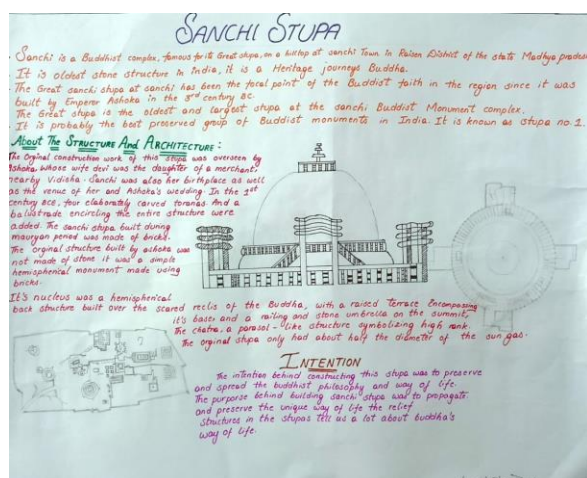 SANCHI STUPA
Sanchi is a Buddhist complex, famous for its Great stupa, on a hilltop at sanchi Town in Raisen District of the state Madhya pradesh
It is oldest stone structure in india, it is a Heritage journeys Buddha.
The Great sanchi stupa at sanchi has been the focal point of the Buddist faith in the region since it was
built by Emperor Ashoka in the 3rd century BC.
The Great stupa is the oldest and largest stupa at the sanchi Buddist Monument complex.
It is probably the best preserved group of Buddist monuments in India. It is known as stupa no 1.
ABOUT THE STRUCTURE AND ARCHITECTURE:
The Orginal construction work of this stupa was overseen by
Ashoka, whose wife devi was the daughter of a merchant,
nearby Vidisha. Sanchi was also her birthplace as well
as the venue of her and Ashoka's wedding. In the 1st
century bce, four elaborately carved toranas. And a
balustrade encircling the entire structure were
added. The sanchi stupa built during
mauryan period was made of bricks.
The orginal structure built by ashoka was
not made of stone it was a simple
hemispherical monument made using
bricks.
It's nucleus was a hemispherical
back structure built over the scared reclis of the Buddha, with a raised terrace Encompassing
it's base, and a railing and stone umbrella on the summit,
The chatra, a parasol-like structure symbolizing high rank.
The orginal stupa only had about half the diameter of the sun gas.
INTENTION
The intention behind constructing this stupa was to preserve
and spread the buddhist philosophy and way of life.
The purporse behind building sanchi stupa was to propagate
and preserve the unique way of life the relief
structures in the stupas tell us a lot about buddha's
way of life.